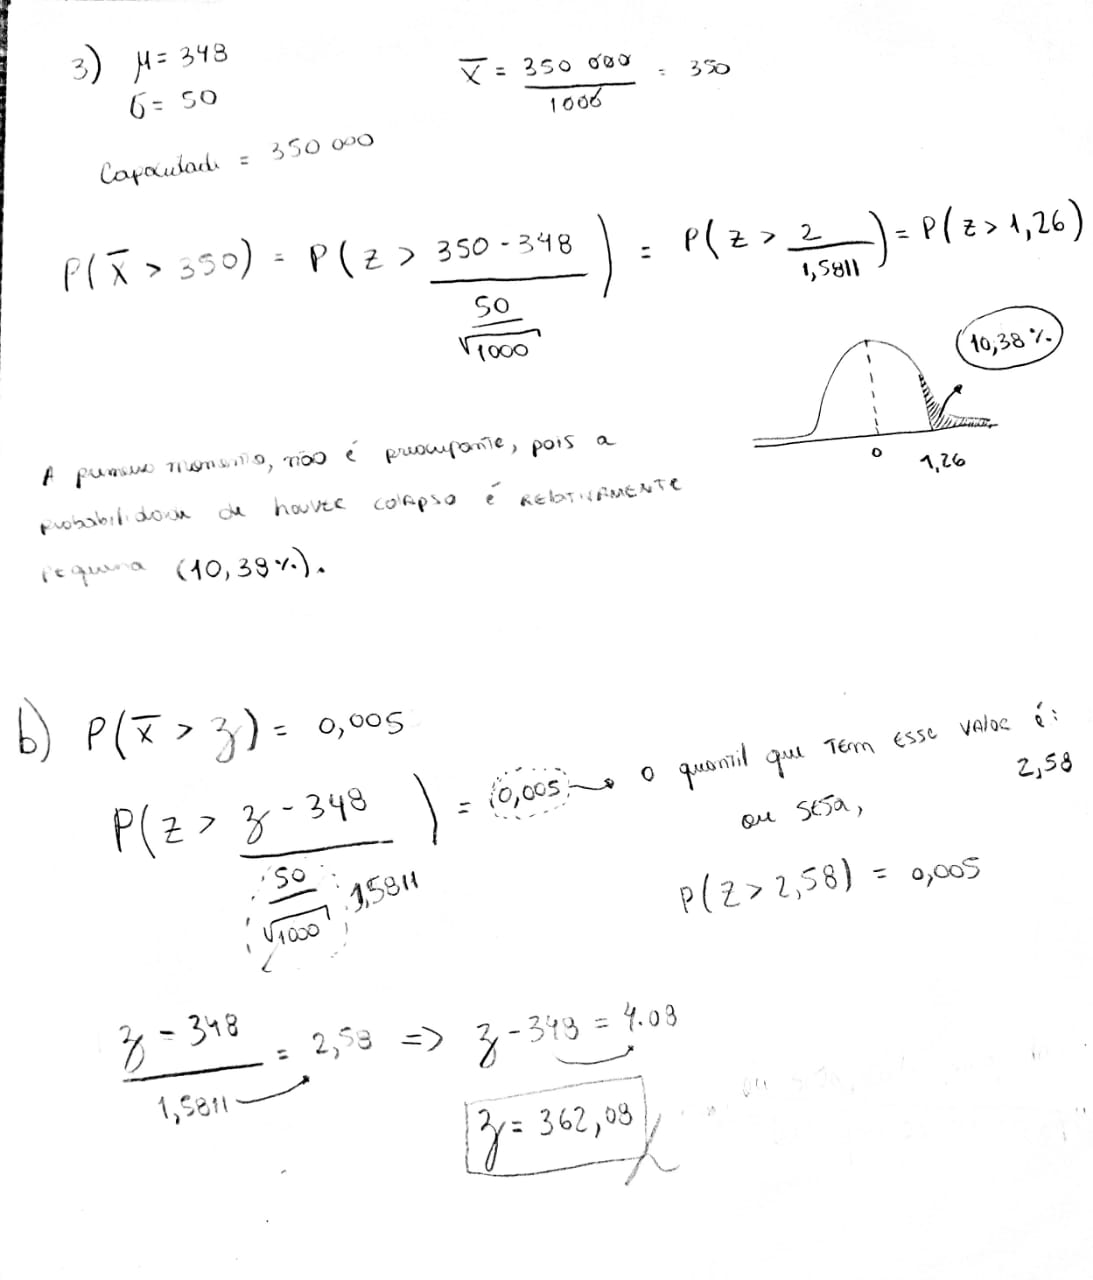 3) μ= 348
σ= 50
X̄ = 350 000 / 1000 = 350
Capacidade = 350 000
P(X̄ > 350) = P(Z > (350-348) / (50/√1000)) = P(Z > 2/1,5811) = P(Z > 1,26)
10,38 %
0 1,26
A primeiro momento, não é preocupante, pois a
probabilidade de houver colapso é RELATIVAMENTE
pequena (10,38%).
b) P(X̄ > z) = 0,005
P(Z > (z-348) / (50/√1000)) = 0,005 → o quantil que Tem esse valor é:
1,5811
2,58
ou seja,
P(Z > 2,58) = 0,005
z - 348 / 1,5811 = 2,58 => z - 348 = 4.08
z = 362,08